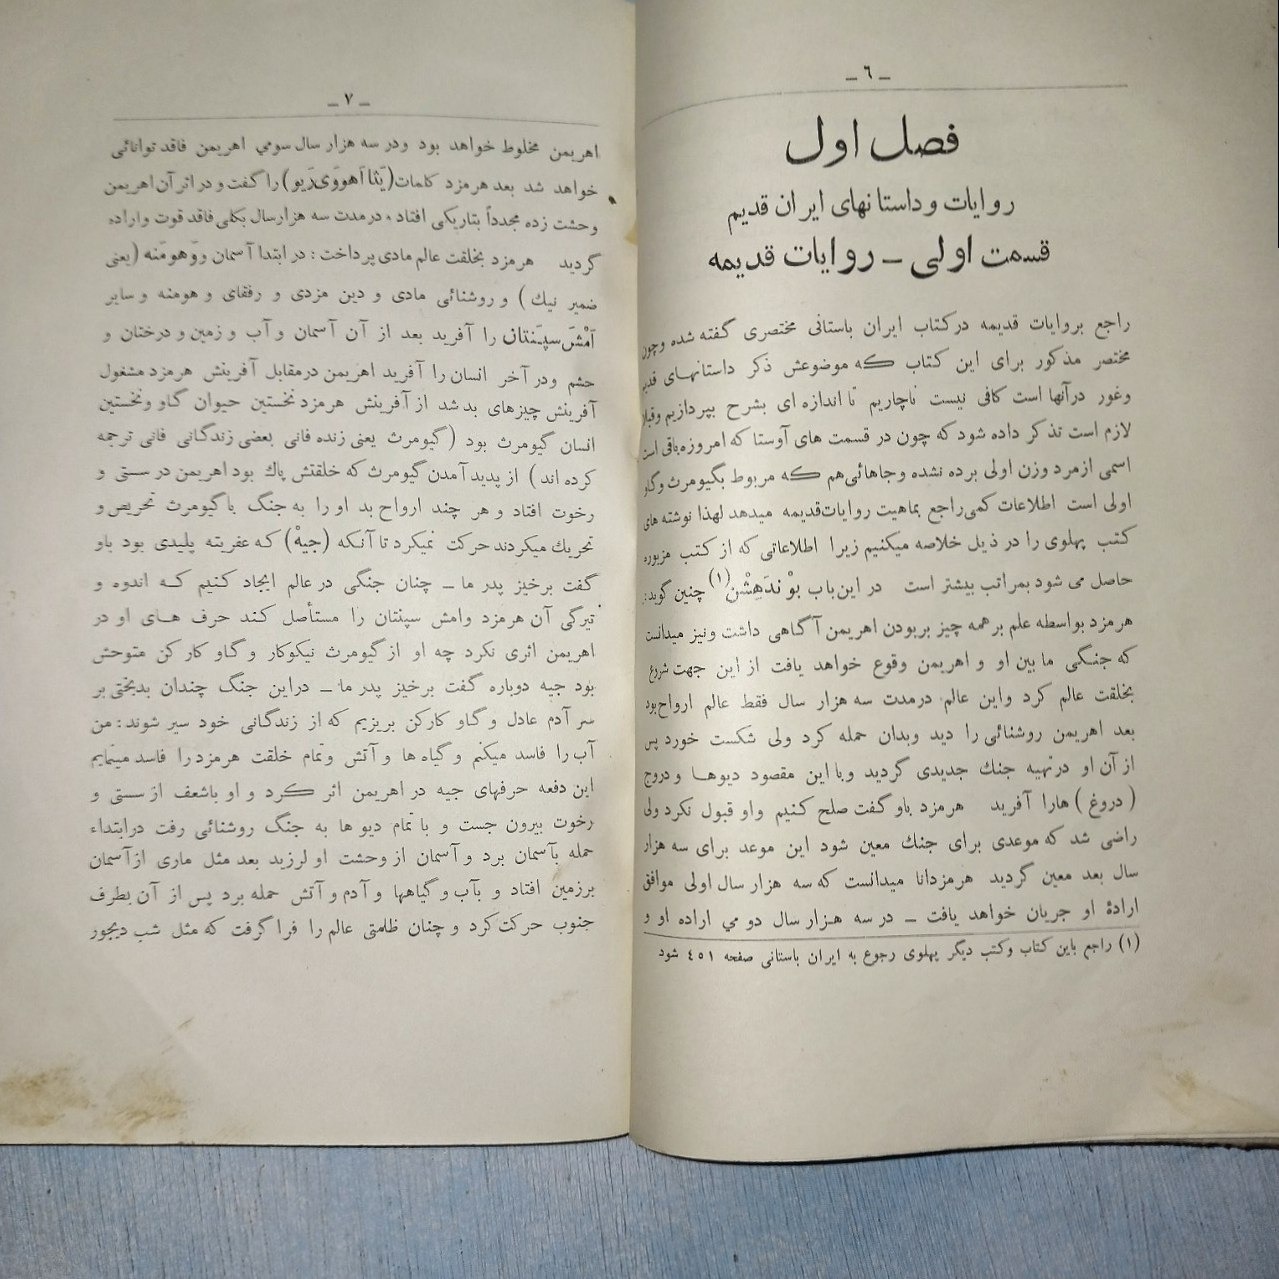 ـ ٦ ـ
فصل اول
روایات و داستانهای ایران قدیم
قسمت اولی ـ روایات قدیمه
راجع بروایات قدیمه درکتاب ایران باستانی مختصری گفته شده وچون
مختصر مذکور برای این کتاب که موضوعش ذکر داستانهای
وغور درآنها است کافی نیست ناچاریم تا اندازه ای بشرح بپردازیم
لازم است تذکر داده شود که چون در قسمت های آوستا که امروزه باقی است
اسمی ازمرد وزن اولی برده نشده وجاهائی هم که مربوط بگیومرث وگاو
اولی است اطلاعات کمی راجع بماهیت روایات قدیمه میدهد لهذا نوشته های
کتب پهلوی را در ذیل خلاصه میکنیم زیرا اطلاعاتی که از کتب مزبوره
حاصل می شود بمراتب بیشتر است در این باب بوْندَهِشْن (۱) چنین گوید:
هرمزد بواسطه علم برهمه چیز بربودن اهریمن آگاهی داشت ونیز میدانست
که جنگی مابین او و اهریمن وقوع خواهد یافت از این جهت شروع
بخلقت عالم کرد واین عالم درمدت سه هزار سال فقط عالم ارواح بود
بعد اهریمن روشنائی را دید وبدان حمله کرد ولی شکست خورد پس
از آن او درتهیه جنك جدیدی گردید وبا این مقصود دیوها و دروج
( دروغ ) هارا آفرید هرمزد باو گفت صلح کنیم واو قبول نکرد ولی
راضی شد که موعدی برای جنك معین شود این موعد برای سه هزار
سال بعد معین گردید هرمزدانا میدانست که سه هزار سال اولی موافق
ارادهٔ او جریان خواهد یافت ـ در سه هزار سال دومی اراده او و
(۱) راجع باین کتاب وکتب دیگر پهلوی رجوع به ایران باستانی صفحه ٤٥١ شود
ـ ۷ ـ
اهریمن مخلوط خواهد بود ودر سه هزار سال سومی اهریمن فاقد توانائی
خواهد شد بعد هرمزد کلمات (یَثا اَهووَی رَیو) را گفت و در اثر آن اهریمن
وحشت زده مجدداً بتاریکی افتاد ، درمدت سه هزارسال بکلی فاقد قوت واراده
گردید هرمزد بخلقت عالم مادی پرداخت : در ابتدا آسمان ووَهومَنه (یعنی
ضمیر نیك ) و روشنائی مادی و دین مزدی و رفقای و هومنه و سایر
اَمْشَ سپَنتان را آفرید بعد از آن آسمان و آب و زمین و درختان و
حشم ودر آخر انسان را آفرید اهریمن درمقابل آفرینش هرمزد مشغول
آفرینش چیزهای بد شد از آفرینش هرمزد نخستین حیوان گاو ونخستین
انسان گیومرث بود (گیومرث یعنی زنده فانی بعضی زندگانی فانی ترجمه
کرده اند ) از پدید آمدن گیومرث که خلقتش پاك بود اهریمن در سستی و
رخوت افتاد و هر چند ارواح بد او را به جنگ با گیومرث تحریص و
تحریك میکردند حرکت نمیکرد تا آنکه (جیهْ) که عفریته پلیدی بود باو
گفت برخیز پدر ما ـ چنان جنگی در عالم ایجاد کنیم که اندوه و
تیرگی آن هرمزد وامش سپنتان را مستأصل کند حرف های او در
اهریمن اثری نکرد چه او از گیومرث نیکوکار و گاو کارکن متوحش
بود جیه دوباره گفت برخیز پدر ما ـ دراین جنگ چندان بدبختی بر
سر آدم عادل و گاو کارکن بریزیم که از زندگانی خود سیر شوند : من
آب را فاسد میکنم و گیاه ها و آتش وتمام خلقت هرمزد را فاسد مینمایم
این دفعه حرفهای جیه در اهریمن اثر کرد و او باشعف از سستی و
رخوت بیرون جست و با تمام دیو ها به جنگ روشنائی رفت درابتداء
حمله بآسمان برد و آسمان از وحشت او لرزید بعد مثل ماری از آسمان
برزمین افتاد و بآب و گیاهها و آدم و آتش حمله برد پس از آن بطرف
جنوب حرکت کرد و چنان ظلمتی عالم را فرا گرفت که مثل شب دیجور